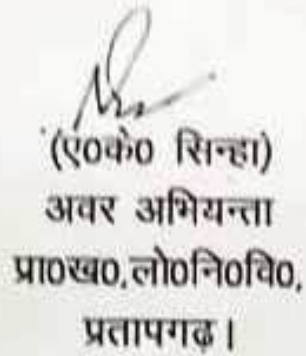 (ए०के० सिन्हा)
अवर अभियन्ता
प्रा०ख०,लो०नि०वि०,
प्रतापगढ़।